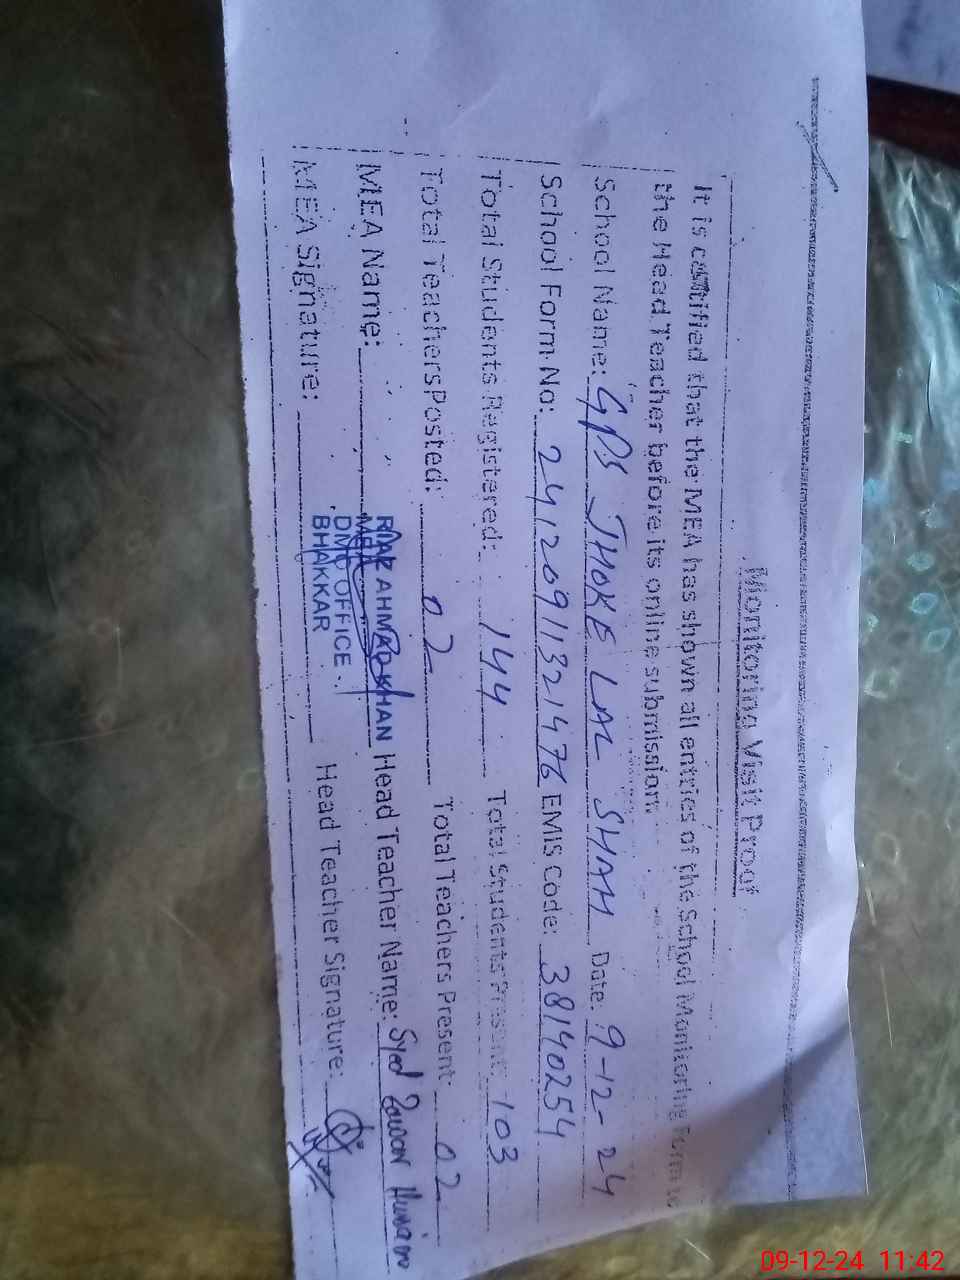 Monitoring Visit Proof
It is certified that the MEA has shown all entries of the School Monitoring Form to
the Head Teacher before its online submission.
School Name: GPS JHOKE LAL SHAH Date: 9-12-24
School Form No: 24120911321476 EMIS Code: 38140254
Total Students Registered: 144 Total Students Present: 103
Total Teachers Posted: 02 Total Teachers Present: 02
MEA Name: AHMAD KHAN Head Teacher Name: Syed Husain
MEA
DMO OFFICE
BHAKKAR
MEA Signature: Head Teacher Signature:
09-12-24 11:42